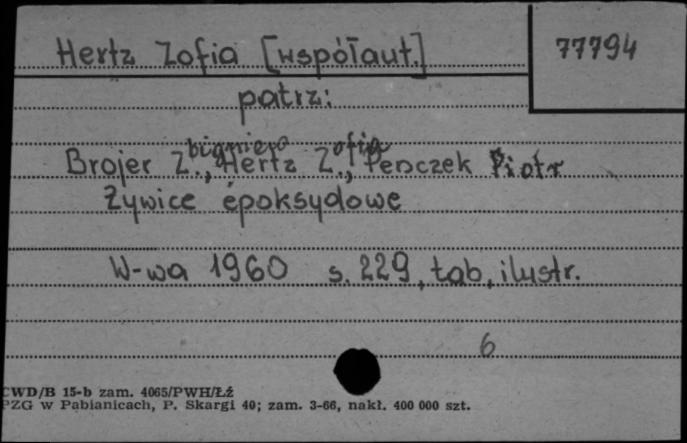 Hertz Zofia [współaut.]
77794
patrz:
Brojer Zbigniew, Hertz Zofia, Penczek Piotr
Żywice epoksydowe
W-wa 1960 s. 229, tab, ilustr.
6
CWD/B 15-b zam. 4065/PWH/Łź
PZG w Pabianicach, P. Skargi 40; zam. 3-66, nakł. 400 000 szt.